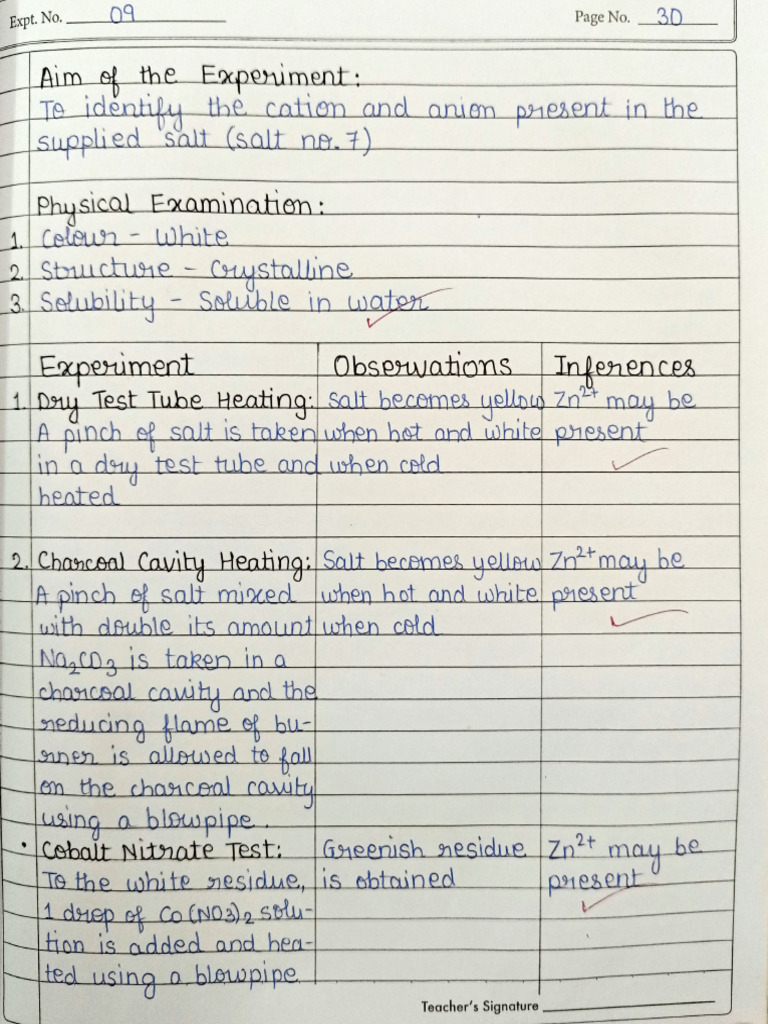 Expt. No. 09
Page No. 30
Aim of the Experiment:
To identify the cation and anion present in the
supplied salt (salt no. 7)
Physical Examination:
1. Colour - White
2. Structure - Crystalline
3. Solubility - Soluble in water
Experiment Observations Inferences
1. Dry Test Tube Heating: Salt becomes yellow Zn²⁺ may be
A pinch of salt is taken when hot and white present
in a dry test tube and when cold
heated
2. Charcoal Cavity Heating: Salt becomes yellow Zn²⁺ may be
A pinch of salt mixed when hot and white present
with double its amount when cold
Na₂CO₃ is taken in a
charcoal cavity and the
reducing flame of bu-
rner is allowed to fall
on the charcoal cavity
using a blowpipe.
• Cobalt Nitrate Test: Greenish residue Zn²⁺ may be
To the white residue, is obtained present
1 drop of Co(NO3)₂ solu-
tion is added and hea-
ted using a blowpipe
Teacher's Signature